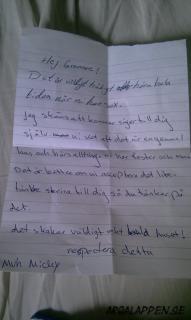 Hej Grannar!
Det är väldigt tråkigt att höra hela
tiden när ni har sex.
Jag skäms att komma säga till dig
själv ni vet att det är en gammal
hus och hörs allting ni har fester och
Det är bättre om ni accepterar det lite.
tänkte skriva till dig så du tänker på
det.
det skakar väldigt mkt huset!
respektera detta
Mvh Micky
ARGALAPPEN.SE